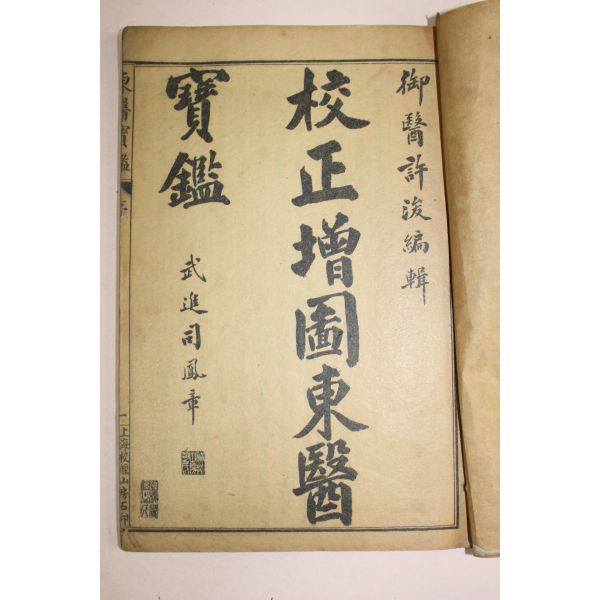 御醫許浚編輯
校正增圖東醫
寶鑑
武進司鳳章
東醫寶鑑
序
上海校經山房石印